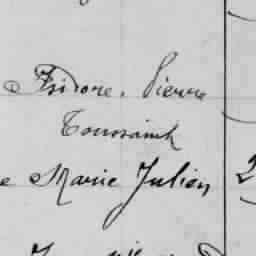 Isidore. Pierre
Toussaint
e Marie Julien 2